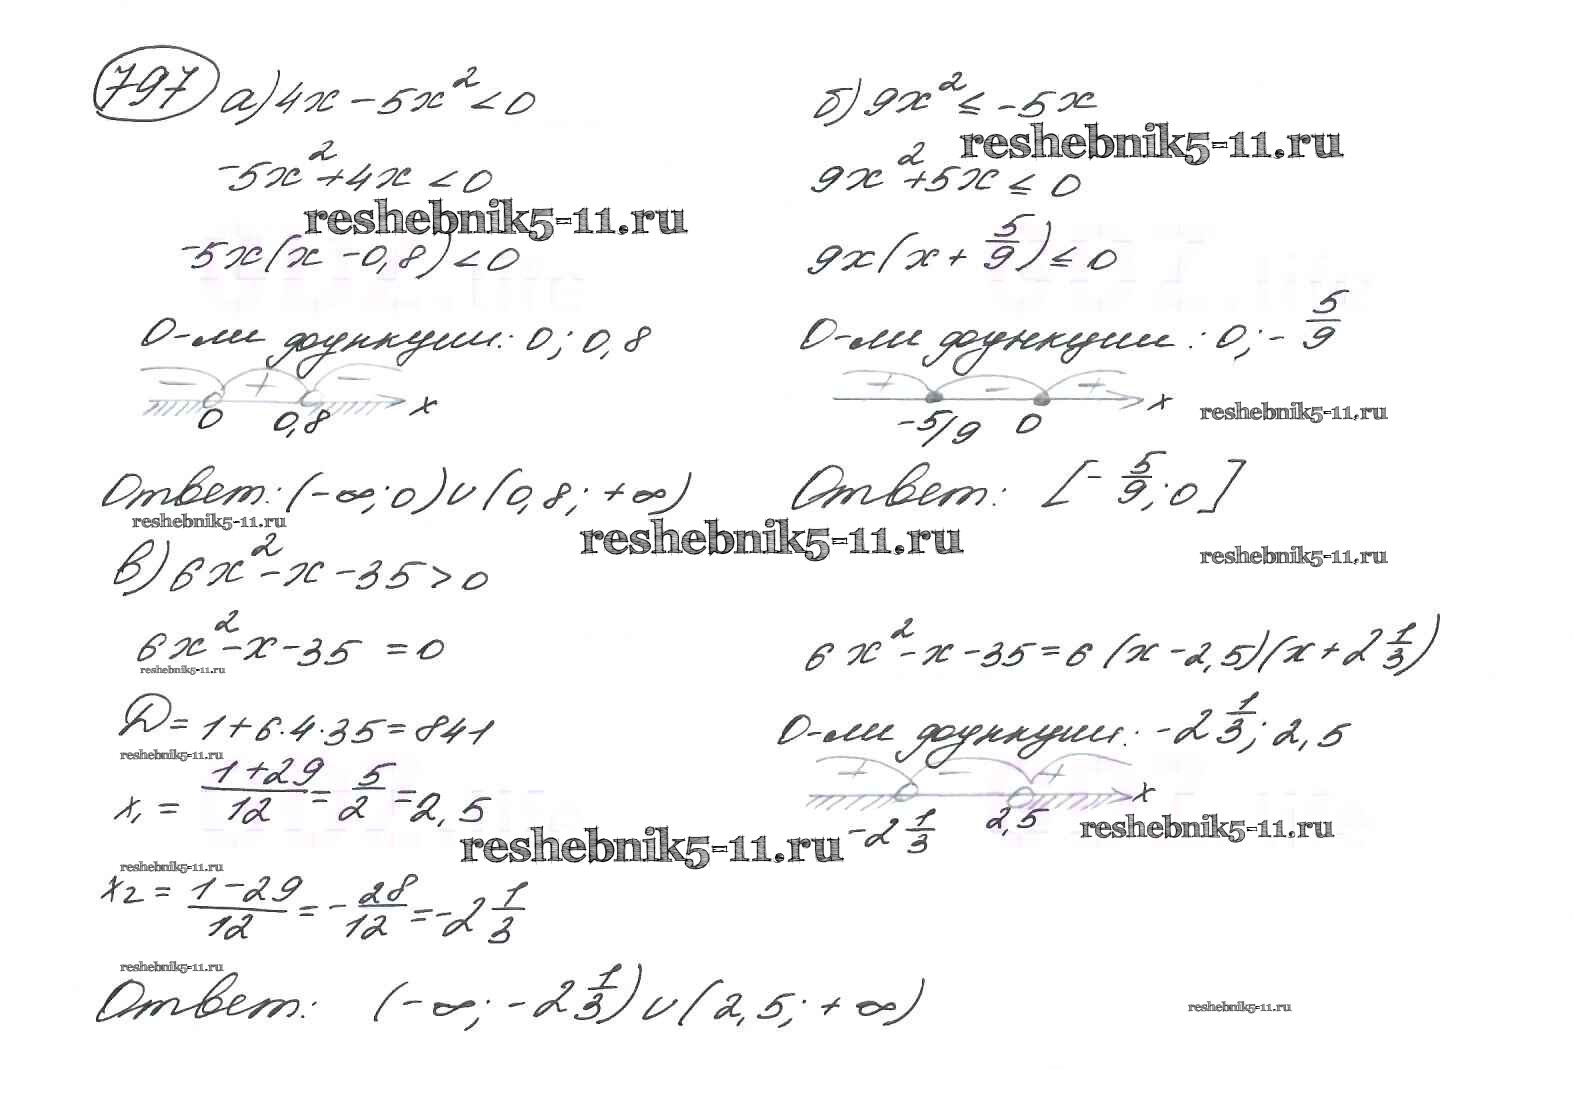 797 а) 4x - 5x² < 0
-5x² + 4x < 0
reshebnik5-11.ru
-5x(x - 0,8) < 0
0-ли функции: 0; 0,8
- + -
0 0,8 x
Ответ: (-∞; 0) ∪ (0,8; +∞)
reshebnik5-11.ru
б) 9x² ≤ -5x
reshebnik5-11.ru
9x² + 5x ≤ 0
9x(x + 5/9) ≤ 0
0-ли функции: 0; - 5/9
+ - +
-5/9 0 x
reshebnik5-11.ru
Ответ: [- 5/9; 0]
reshebnik5-11.ru
reshebnik5-11.ru
в) 6x² - x - 35 > 0
6x² - x - 35 = 0
reshebnik5-11.ru
D = 1 + 6·4·35 = 841
reshebnik5-11.ru
x₁ = (1+29)/12 = 5/2 = 2,5
reshebnik5-11.ru
reshebnik5-11.ru
x₂ = (1-29)/12 = - 28/12 = -2 1/3
reshebnik5-11.ru
6x² - x - 35 = 6(x - 2,5)(x + 2 1/3)
0-ли функции: -2 1/3; 2,5
+ - +
-2 1/3 2,5 x
reshebnik5-11.ru
Ответ: (-∞; -2 1/3) ∪ (2,5; +∞)
reshebnik5-11.ru